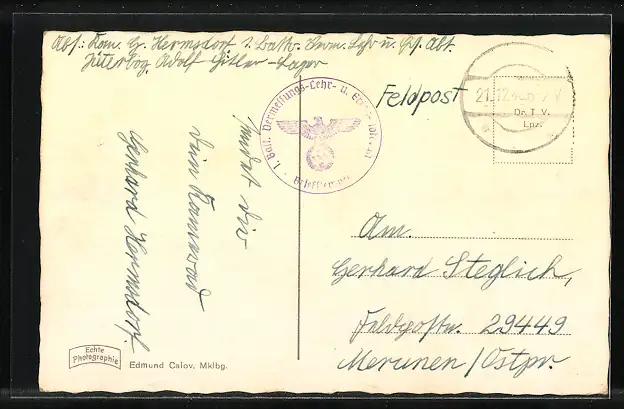 Abs: Kan. G. Hermsdorf 1. Battr. Verm. Lehr u. Abt.
Jüterbog, Adolf-Hitler-Lager
Feldpost
21.12.
Dr. T. V.
Lpz.
1. Batt. Vermessungs-Lehr- u.
Briefstempel
sendet dir
dein Kamerad
Gerhard Hermsdorf.
An.
Gerhard Steglich,
Feldpostnr. 29449
Merunen/Ostpr.
Echte
Photographie
Edmund Calov, Mklbg.